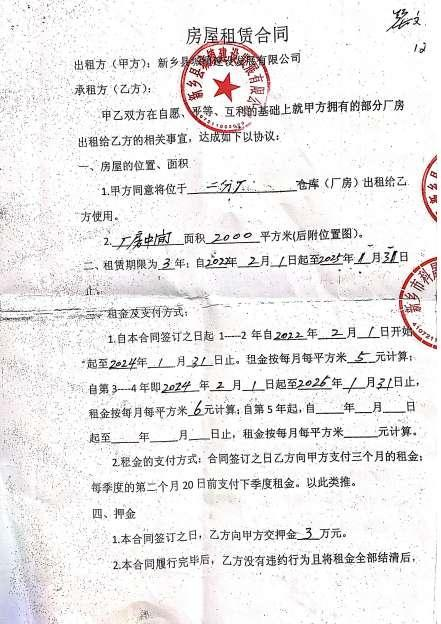 房屋租赁合同
12
出租方（甲方）：新乡县 建设发展有限公司
承租方（乙方）：
甲乙双方在自愿、平等、互利的基础上就甲方拥有的部分厂房
出租给乙方的相关事宜，达成如下协议：
一、房屋的位置、面积
1.甲方同意将位于 二分厂 仓库（厂房）出租给乙
方使用。
2. 厂房中间 面积 2000 平方米(后附位置图)。
二、租赁期限为 3 年；自2022年 2 月 1 日起至2025年 1 月 31 日
止。
三、租金及支付方式：
1.自本合同签订之日起 1----2 年自2022 年 2 月 1 日开始
起至2024年 1 月 31 日止。租金按每月每平方米 5 元计算；
自第 3----4 年即2024 年 2 月 1 日起至2026年 1 月 31 日止，
租金按每月每平方米 6 元计算；自第 5 年起，自____年____月____日
起至____年____月____日止，租金按每月每平方米____元计算。
2.租金的支付方式：合同签订之日乙方向甲方支付三个月的租金；
每季度的第二个月 20 日前支付下季度租金。以此类推。
四、押金
1.本合同签订之日，乙方向甲方交押金 3 万元。
2.本合同履行完毕后，乙方没有违约行为且将租金全部结清后，